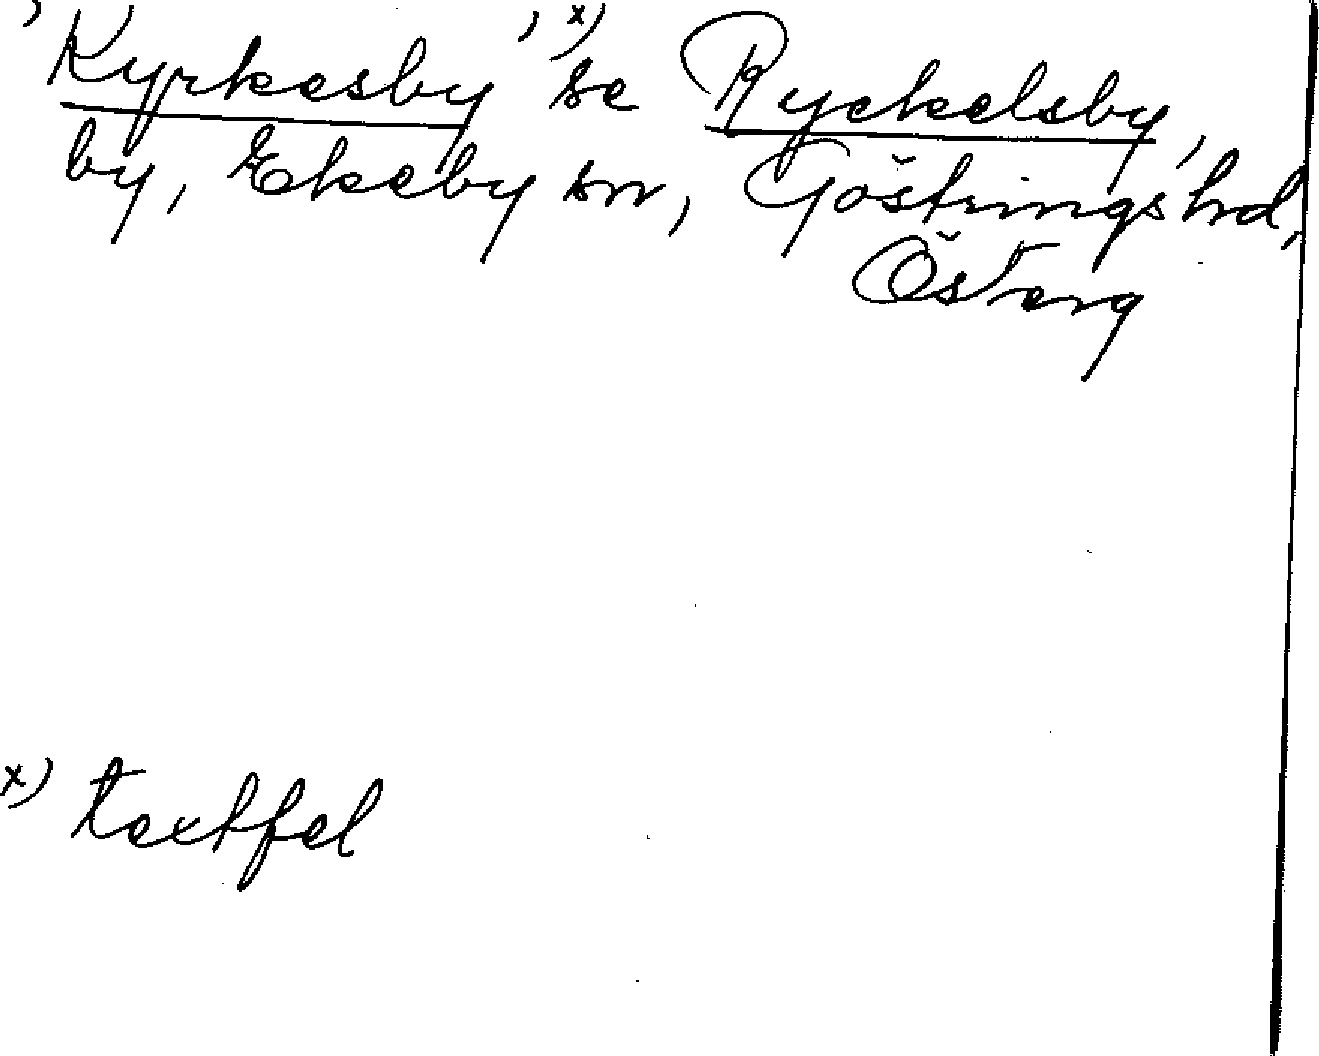 ’Kyrkesby’ x) se Ryckelsby,
by, Ekeby sn, Göstrings hd,
Österg
x) textfel